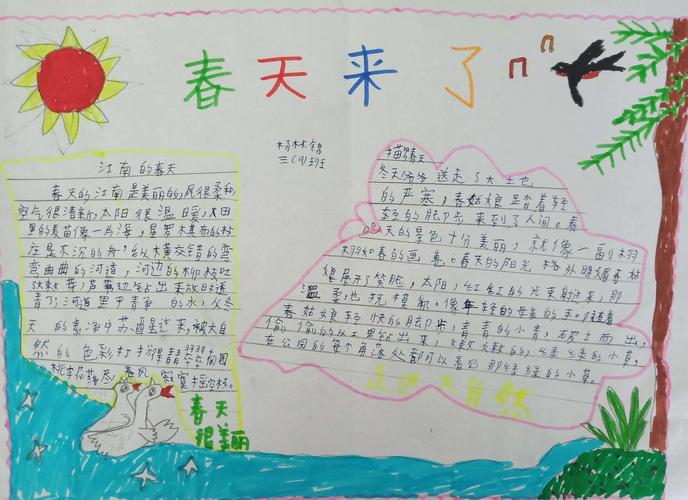 春天来了
三(9)班
江南的春天
春天的江南是美丽的,风很柔和,
空气很清新,太阳很温暖,大田
里的麦苗像一片海,星罗木其布的村
庄是木沉的舟,纵横交错的弯
弯曲曲的河道,河边的柳枝吐
然的色彩打扮得
桃花落尽 春风 寂寞
春天
很美丽
描写春天
冬天爷爷送走了大土也
的严寒,春姑娘踏着轻
轻的脚步来到了人间。春
天的景色十分美丽,就像一副栩
栩如春的画卷:春天的阳光格外明媚春姑
娘展开了笑脸,太阳,红红的光束射过来,那
温柔地抚摸你。像年轻的母亲的手。随着
春姑娘轻快的脚步,青青的小青,破土而出,
偷偷的从土里钻出来,嫩嫩的,绿绿的小草。
在公园的每个角落处都可以看见那绿绿的小草。
走进大自然